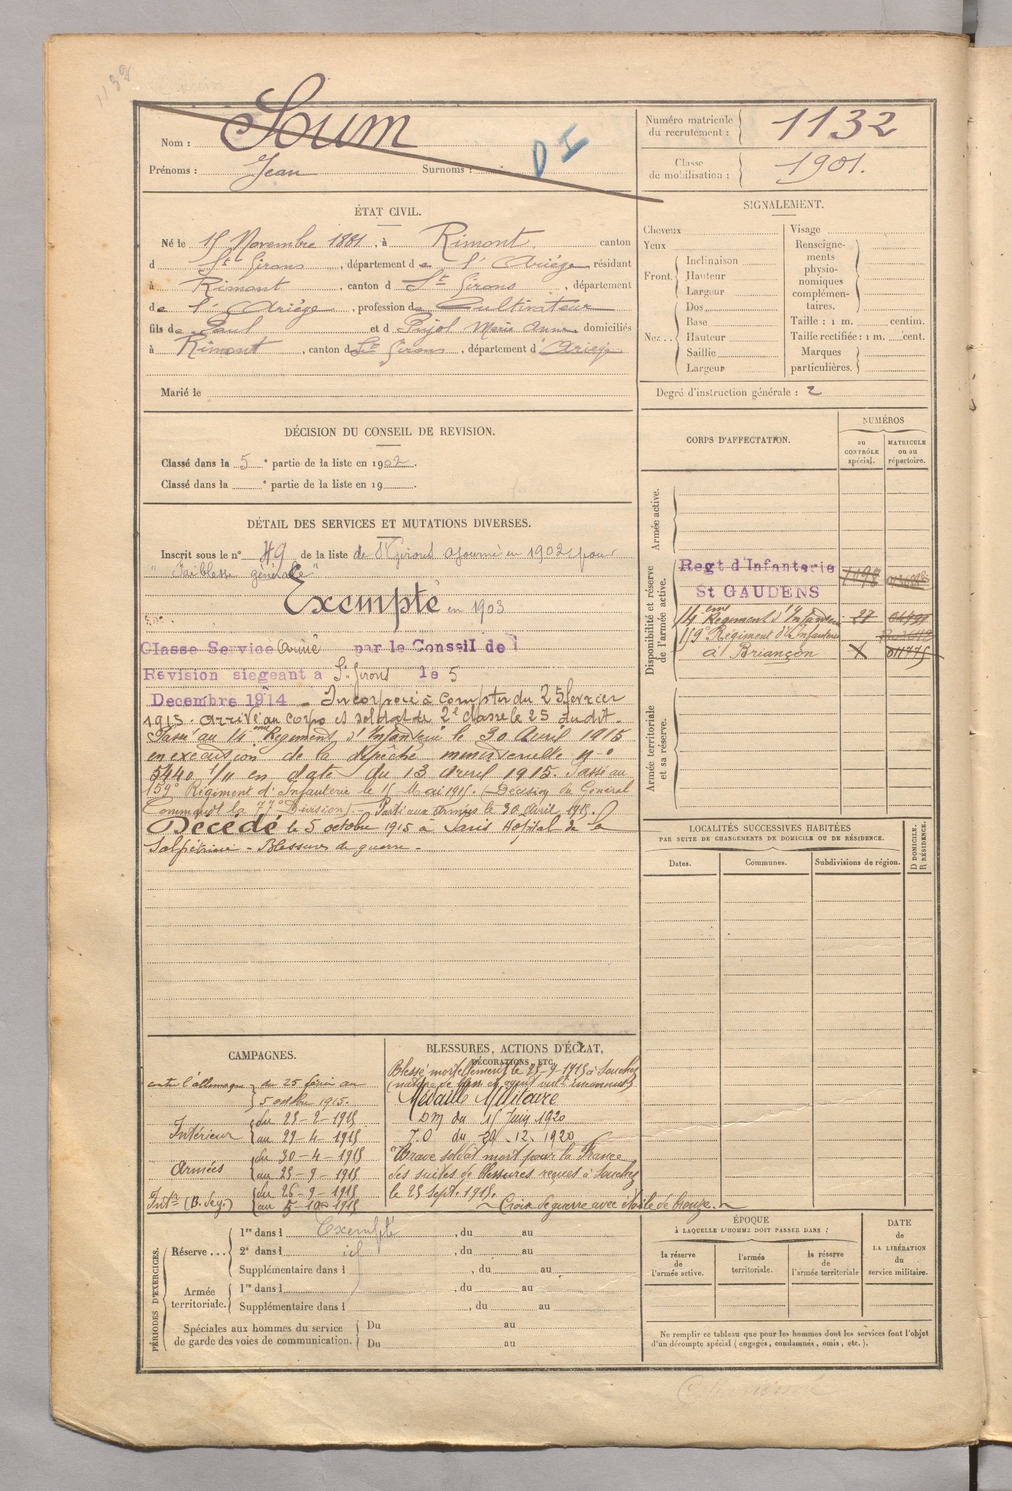 1132
Nom : Soum
Prénoms : Jean Surnoms :
D I
Numéro matricule du recrutement : 1132
Classe de mobilisation : 1901.
ÉTAT CIVIL.
Né le 15 Novembre 1881, à Rimont. canton
d St Girons, département de l'Ariège résidant
à Rimont, canton d St Girons, département
de l'Ariège, profession de Cultivateur
fils de Paul et d Pujol Marie Anne domiciliés
à Rimont, canton d St Girons, département d'Ariège
Marié le
SIGNALEMENT.
Cheveux
Yeux
Front. Inclinaison
Hauteur
Largeur
Nez .. Dos
Base
Hauteur
Saillie
Largeur
Visage
Renseignements physionomiques complémentaires.
Taille : 1 m. centim.
Taille rectifiée : 1 m. cent.
Marques particulières.
Degré d'instruction générale : 2
DÉCISION DU CONSEIL DE REVISION.
Classé dans la 5e partie de la liste en 1902.
Classé dans la e partie de la liste en 19 .
DÉTAIL DES SERVICES ET MUTATIONS DIVERSES.
Inscrit sous le n° 49 de la liste de St Girons ajourné en 1902 pour
"Faiblesse générale"
Exempté en 1903
Classe Service Armé par le Conseil de
Révision siégeant à St Girons le 5
Decembre 1914 _ Incorporé à compter du 25 février
1915. Arrivé au corps et soldat de 2e classe le 25 dudit.
Passé au 14eme Régiment d'Infanterie le 30 Avril 1915
en exécution de la dépêche ministérielle n°
5440 1/11 en date du 13 avril 1915. Passé au
159e Régiment d'Infanterie le 15 Mai 1915. (Décision du Général
Commandt la 77e Division). - Parti aux armées le 30 avril 1915.
Décédé le 5 octobre 1915 à Paris Hôpital de la
Salpétrière - Blessures de guerre.
CORPS D'AFFECTATION.
NUMÉROS
au CONTRÔLE spécial.
MATRICULE ou au répertoire.
Armée active.
Disponibilité et réserve de l'armée active.
Regt d'Infanterie
St GAUDENS
14eme Régiment d'Infanterie 27
159e Régiment d'Infanterie
à Briançon X 011775
Armée territoriale et sa réserve.
LOCALITÉS SUCCESSIVES HABITÉES
PAR SUITE DE CHANGEMENTS DE DOMICILE OU DE RÉSIDENCE.
Dates.
Communes.
Subdivisions de région.
D DOMICILE. R RÉSIDENCE.
CAMPAGNES.
contre l'allemagne du 25 février au
5 octobre 1915.
Intérieur du 25-2-1915
au 29-4-1915
Armées du 30-4-1915
au 25-9-1915
Intr (B. Sej.) du 26-9-1915
au 5-10-1915
BLESSURES, ACTIONS D'ÉCLAT,
DÉCORATIONS, ETC.
Blessé mortellement le 25-9-1915 à Souchez
Médaille Militaire
DM du 15 Juin 1920
J.O du 20.12.1920
"Brave soldat mort pour la France
des suites de blessures reçues à Souchez
le 25 Sept. 1915.
Croix de guerre avec étoile de bronze.
PÉRIODES D'EXERCICES.
Réserve ... 1re dans l Exempté , du au
2e dans l id , du au
Supplémentaire dans l , du au
Armée territoriale. 1re dans l , du au
Supplémentaire dans l , du au
Spéciales aux hommes du service de garde des voies de communication. Du au
Du au
ÉPOQUE
À LAQUELLE L'HOMME DOIT PASSER DANS :
la réserve de l'armée active.
l'armée territoriale.
la réserve de l'armée territoriale
DATE DE LA LIBÉRATION du service militaire.
Ne remplir ce tableau que pour les hommes dont les services font l'objet
d'un décompte spécial (engagés, condamnés, omis, etc.).